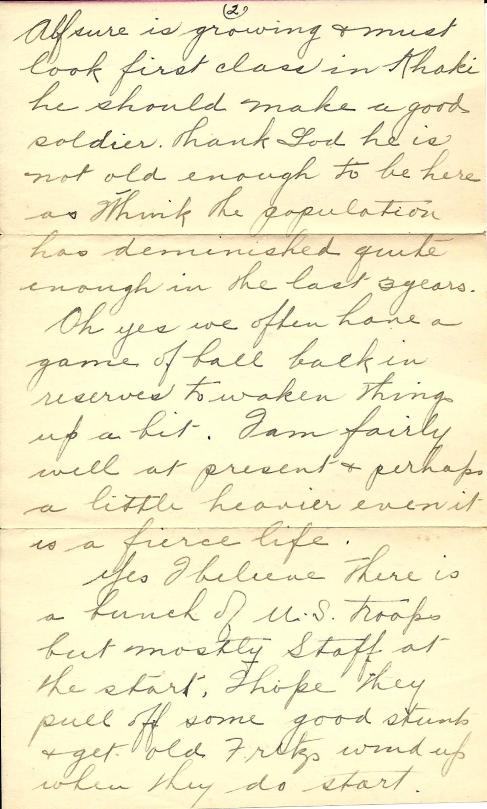 (2)
Alf sure is growing & must
look first class in Khaki
he should make a good
soldier. Thank God he is
not old enough to be here
as I think the population
has deminished quite
enough in the last 3 years.
Oh yes we often have a
game of ball back in
reserves to waken things
up a bit. I am fairly
well at present & perhaps
a little heavier even it
is a fierce life.
Yes I believe there is
a bunch of U.S. troops
but mostly Staff at
the start. I hope they
pull off some good stunts
& get old Fritz wind up
when they do start.